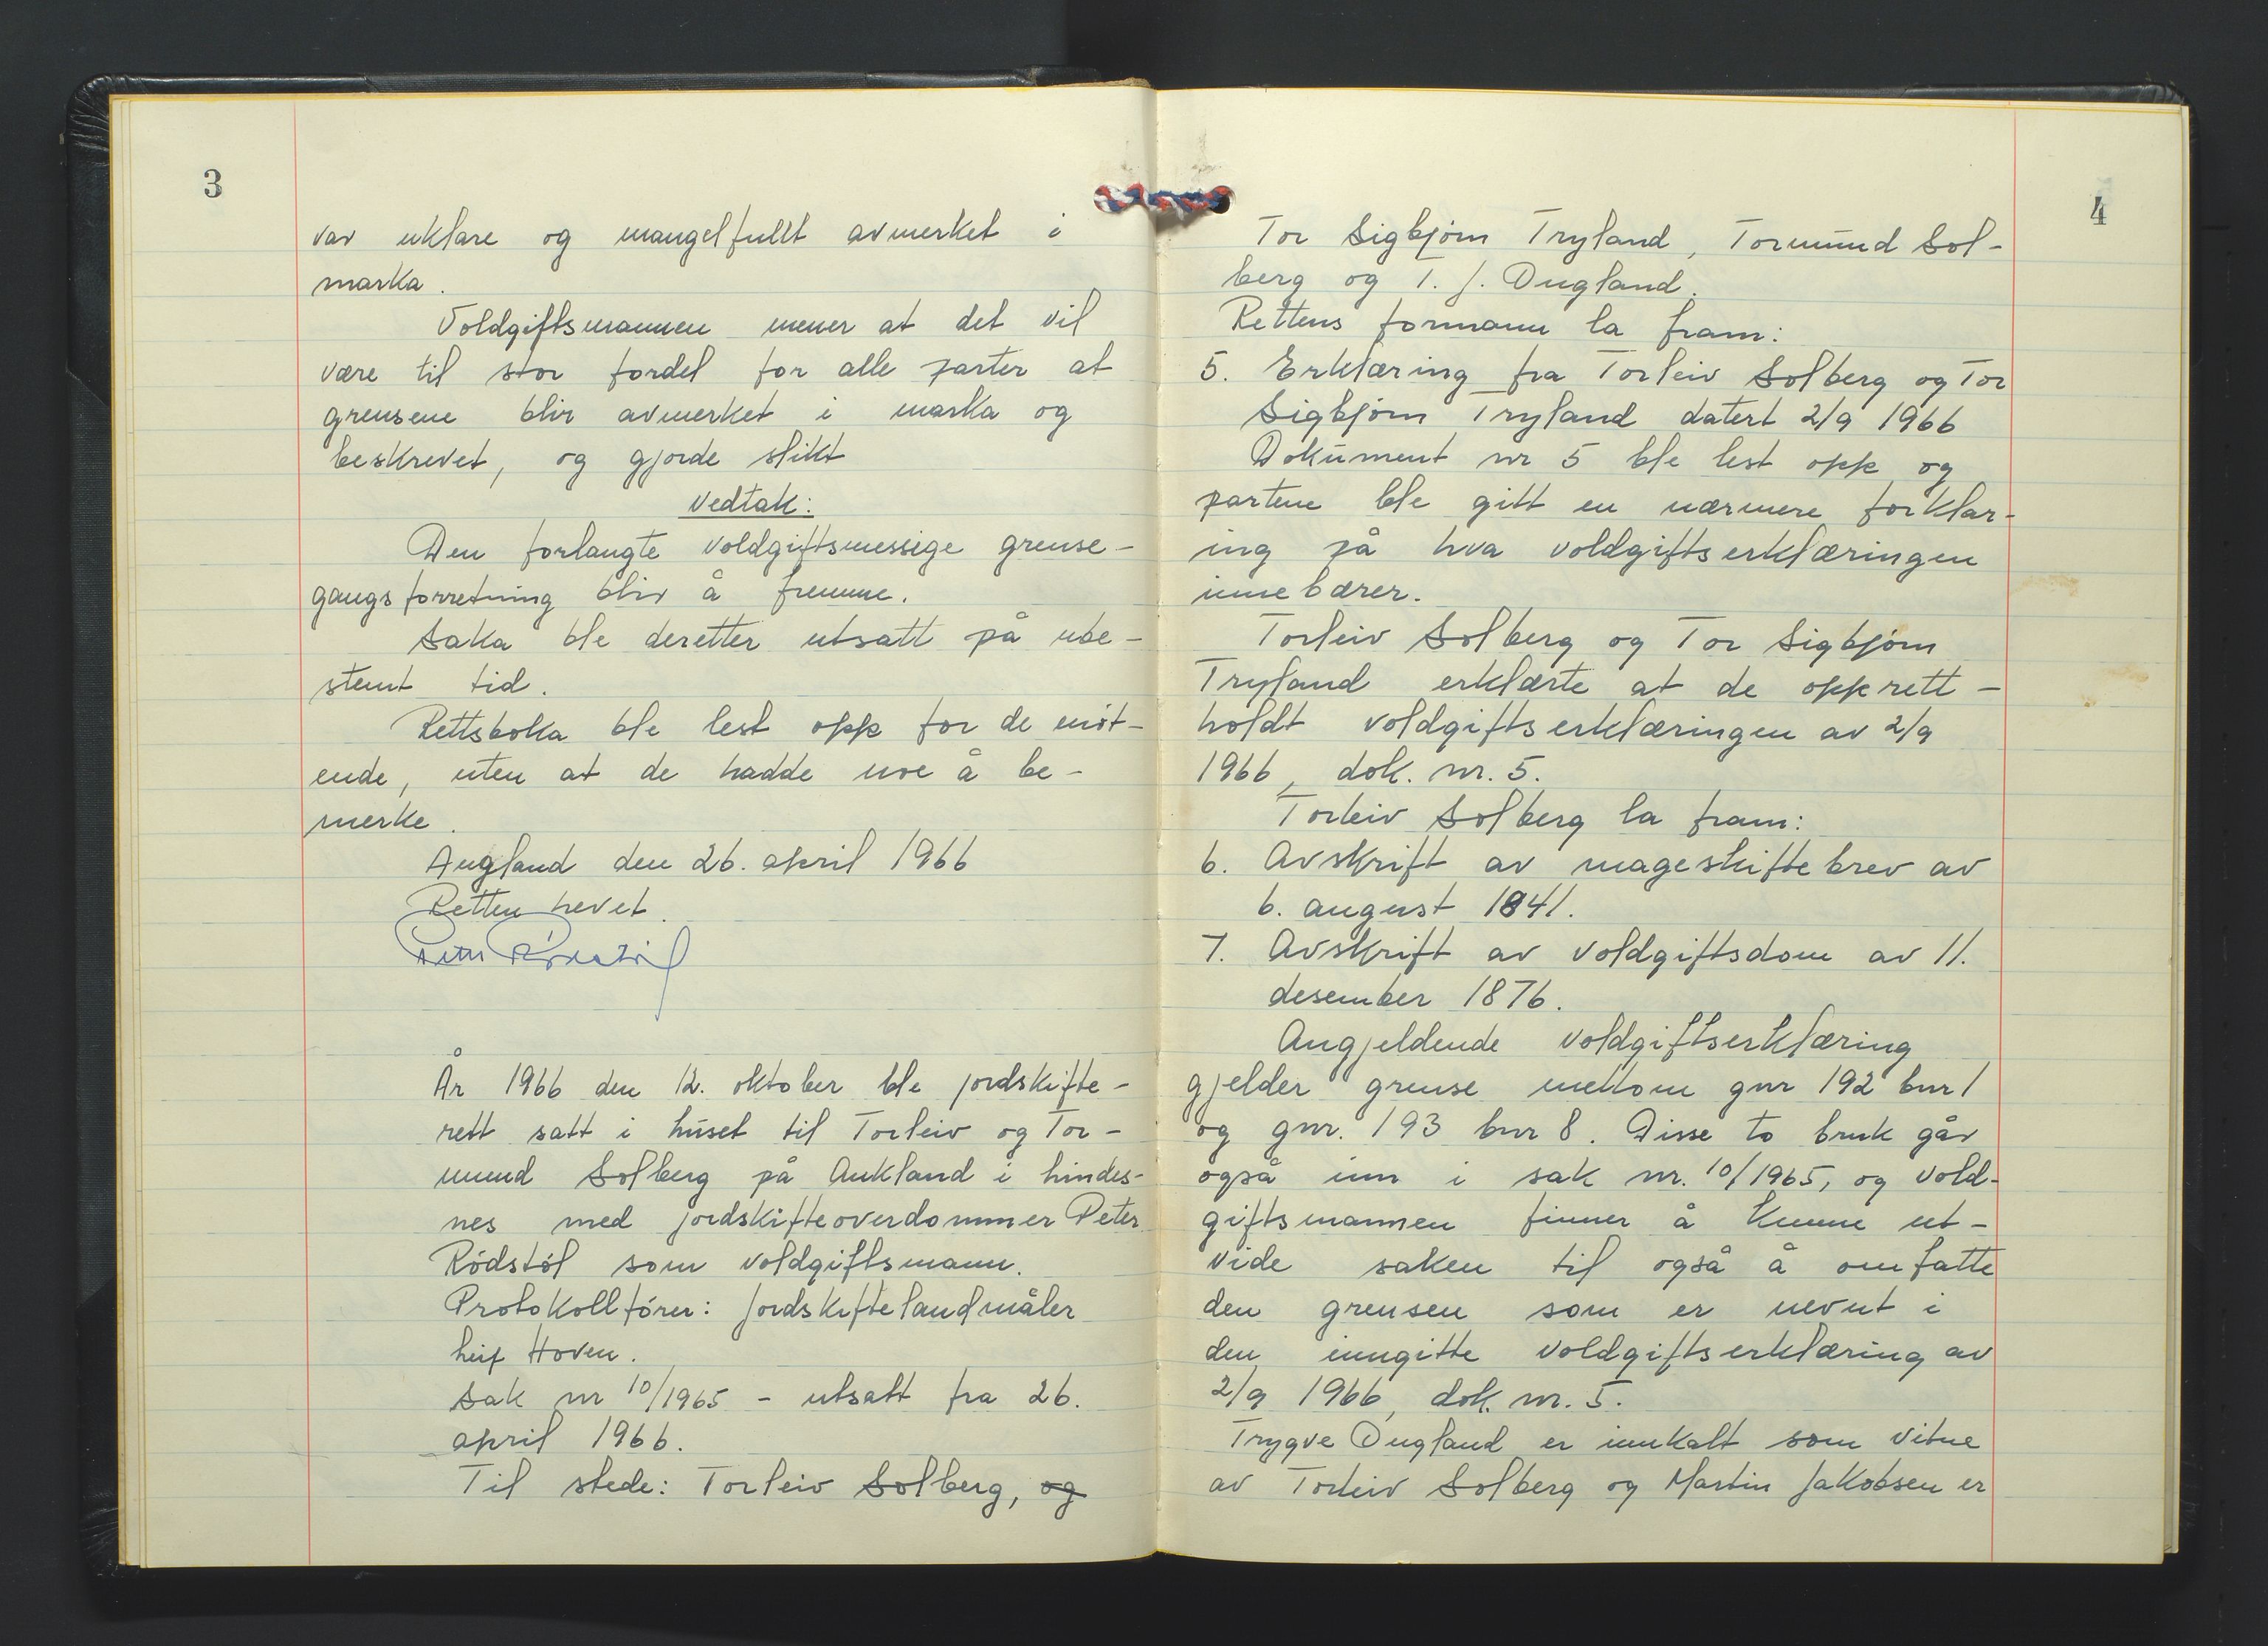 3
var uklare og mangelfullt avmerket i
marka.
Voldgiftsmannen mener at det vil
være til stor fordel for alle parter at
grensene blir avmerket i marka og
beskrevet, og gjorde slikt
Vedtak:
Den forlangte voldgiftsmessige grense-
gangsforretning blir å fremme.
Saka ble deretter utsatt på ube-
stemt tid.
Rettsboka ble lest opp for de möt-
ende, uten at de hadde noe å be-
merke.
Augland den 26. april 1966
Retten hevet.
År 1966 den 12. oktober ble jordskifte-
rett satt i huset til Torleiv og Tor-
mund Solberg på Aukland i Lindes-
nes med jordskifteoverdommer Peter
Rödstöl som voldgiftsmann.
Protokollförer: Jordskiftelandmåler
Leif Hoven.
Sak nr 10/1965 - utsatt fra 26.
april 1966.
Til stede: Torleiv Solberg, og
4
Tor Sigbjörn Tryland, Tormund Sol-
berg og T. J. Ougland.
Rettens formann la fram:
5. Erklæring fra Torleiv Solberg og Tor
Sigbjörn Tryland datert 2/9 1966
Dokument nr 5 ble lest opp og
partene ble gitt en nærmere forklar-
ing på hva voldgiftserklæringen
innebærer.
Torleiv Solberg og Tor Sigbjörn
Tryland erklærte at de opprett-
holdt voldgiftserklæringen av 2/9
1966, dok. nr. 5.
Torleiv Solberg la fram:
6. Avskrift av mageskiftebrev av
6. august 1841.
7. Avskrift av voldgiftsdom av 11.
desember 1876.
Angjeldende voldgiftserklæring
gjelder grense mellom gnr 192 bnr 1
og gnr. 193 bnr 8. Disse to bruk går
også inn i sak nr. 10/1965, og vold-
giftsmannen finner å kunne ut-
vide saken til også å omfatte
den grensen som er nevnt i
den inngitte voldgiftserklæring av
2/9 1966, dok. nr. 5.
Trygve Ougland er innkalt som vitne
av Torleiv Solberg og Martin Jakobsen er